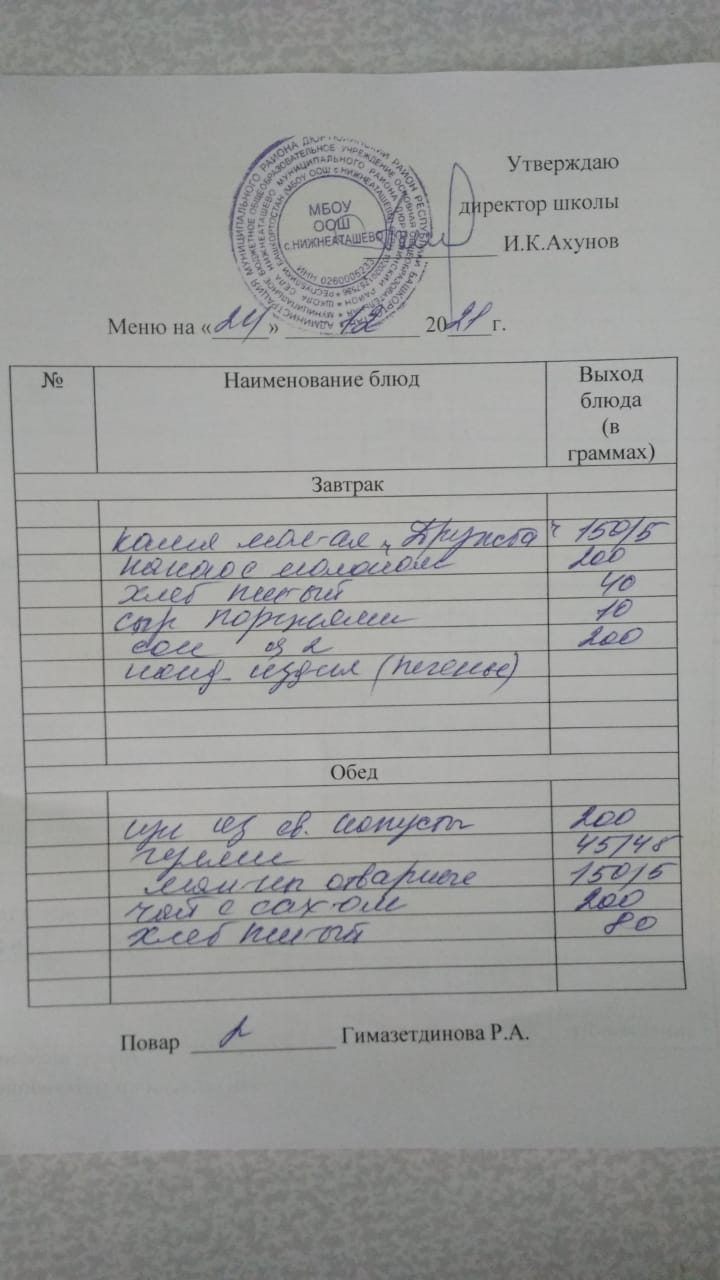 Утверждаю
директор школы
И.К.Ахунов
МБОУ
ООШ
с.НИЖНЕАТАШЕВО
ИНН 0260006233
Меню на «24» 12 2021 г.
№ Наименование блюд Выход
блюда
(в
граммах)
Завтрак
каша мол-ая „Дружба" 150/5
какао с молоком 200
хлеб пш-ый 40
сыр порциями 10
сок 0,2 200
конд. издел (печенье)
Обед
щи из св. капусты 200
45/45
мак-ны отварные 150/5
чай с сах-ом 200
хлеб пш-ый 80
Повар Гимазетдинова Р.А.